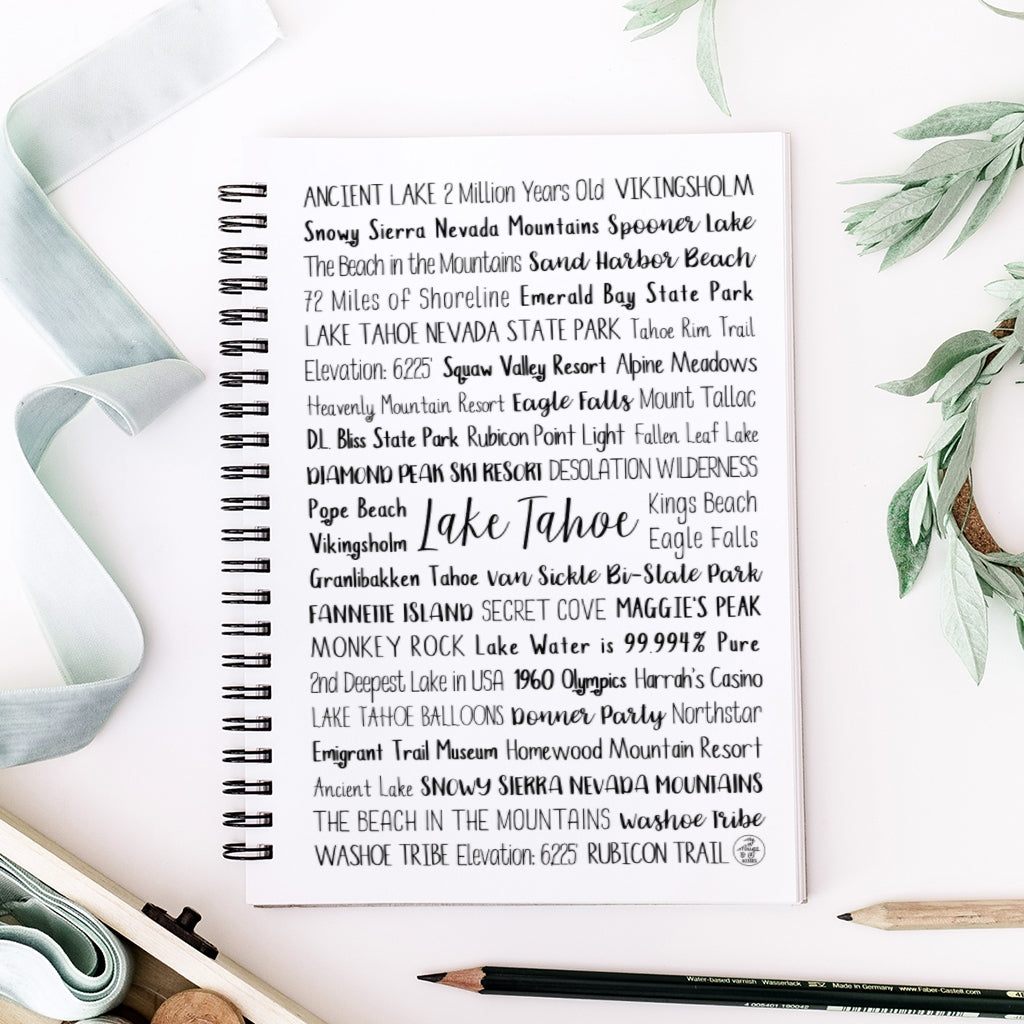 ANCIENT LAKE 2 Million Years Old VIKINGSHOLM
Snowy Sierra Nevada Mountains Spooner Lake
The Beach in the Mountains Sand Harbor Beach
72 Miles of Shoreline Emerald Bay State Park
LAKE TAHOE NEVADA STATE PARK Tahoe Rim Trail
Elevation: 6,225' Squaw Valley Resort Alpine Meadows
Heavenly Mountain Resort Eagle Falls Mount Tallac
D.L. Bliss State Park Rubicon Point Light Fallen Leaf Lake
DIAMOND PEAK SKI RESORT DESOLATION WILDERNESS
Pope Beach
Vikingsholm
Lake Tahoe
Kings Beach
Eagle Falls
Granlibakken Tahoe Van Sickle Bi-State Park
FANNETTE ISLAND SECRET COVE MAGGIE'S PEAK
MONKEY ROCK Lake Water is 99.994% Pure
2nd Deepest Lake in USA 1960 Olympics Harrah's Casino
LAKE TAHOE BALLOONS Donner Party Northstar
Emigrant Trail Museum Homewood Mountain Resort
Ancient Lake SNOWY SIERRA NEVADA MOUNTAINS
THE BEACH IN THE MOUNTAINS Washoe Tribe
WASHOE TRIBE Elevation: 6,225' RUBICON TRAIL
Water-based varnish Wasserlack Made in Germany www.Faber-Castell.com
4 005401 190042